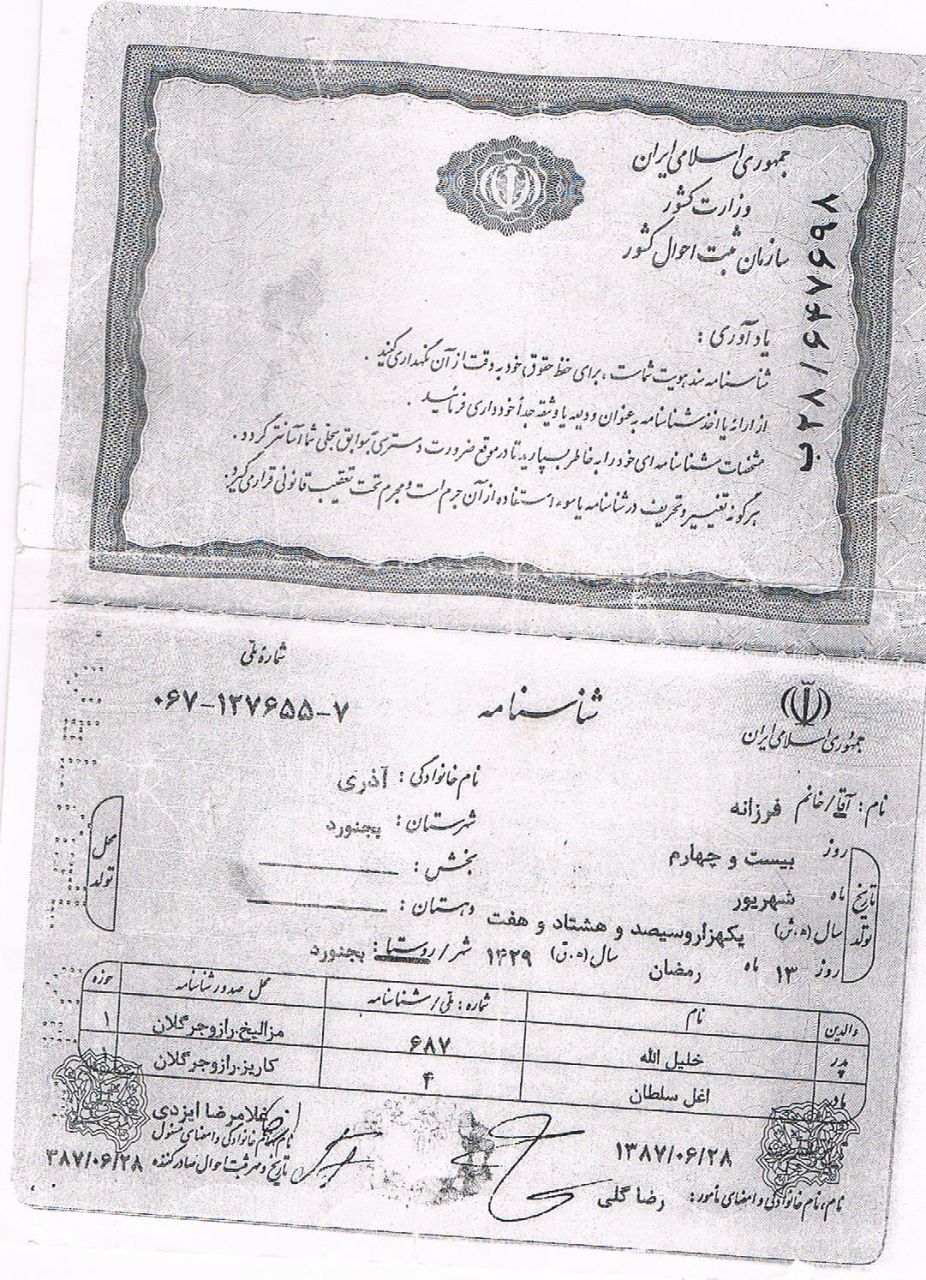 جمهوری اسلامی ایران
وزارت کشور
سازمان ثبت احوال کشور
ب۲۸/۶۴۷۶۹۷
یادآوری :
شناسنامه سند هویت شماست ، برای حفظ حقوق خود به دقت از آن نگهداری کنید .
از ارائه یا اخذ شناسنامه به عنوان ودیعه یا وثیقه جداً خودداری فرمائید .
مشخصات شناسنامه ای خود را به خاطر بسپارید تا در موقع ضرورت دسترسی بسوابق سجلی شما آسانتر گردد .
هرگونه تغییر و تحریف در شناسنامه یا سوء استفاده از آن جرم است و مجرم تحت تعقیب قانونی قرار می گیرد.
جمهوری اسلامی ایران
شناسنامه
شماره ملی
۰۶۷-۱۲۷۶۵۵-۷
نام : آقا/خانم فرزانه
نام خانوادگی : آذری
تاریخ تولد
روز بیست و چهارم
ماه شهریور
سال (ه.ش) یکهزاروسیصد و هشتاد و هفت
روز ۱۳ ماه رمضان سال (ه.ق) ۱۴۲۹
محل تولد
شهرستان : بجنورد
بخش :
دهستان :
شهر/روستا : بجنورد
والدین نام شماره : ملی/شناسنامه محل صدور شناسنامه حوزه
پدر خلیل الله ۶۸۷ مزالیخ.رازوجرگلان ۱
مادر اغل سلطان ۴ کاریز.رازوجرگلان
۱۳۸۷/۰۶/۲۸
نام، نام خانوادگی و امضای مأمور : رضا گلی
غلامرضا ایزدی
نام، نام خانوادگی و امضای مسئول
تاریخ و مهر ثبت احوال صادرکننده ۳۸۷/۰۶/۲۸